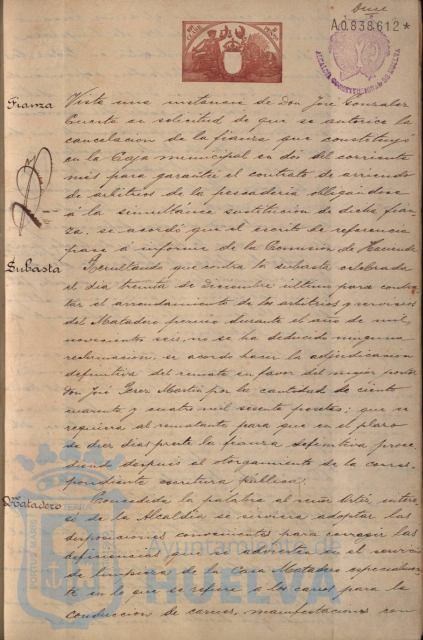 Doce
A.0.838,612*
ALCALDIA CONSTITUCIONAL DE HUELVA
Fianza
Vista una instancia de don José Gonzalez
Cuesta en solicitud de que se autorice la
cancelacion de la fianza que constituyó
en la Caja municipal en dos del corriente
mes para garantir el contrato de arriendo
de arbitrios de la pescaderia obligandose
á la simultánea sustitucion de dicha fian-
za, se acordó que el escrito de referencia
pase á informe de la Comision de Hacienda
Subasta
Resultando que contra la subasta celebrada
el dia treinta de diciembre último para contra-
tar el arrendamiento de los arbitrios y servicios
del Matadero perecio durante el año de mil
novecientos seis, no se ha deducido ninguna
reclamacion, se acordó hacer la adjudicacion
definitiva del remate en favor del mejor postor
don José Perez Martin por la cantidad de ciento
cuarenta y cuatro mil sesenta pesetas; que se
requiera al rematante para que en el plazo
de diez dias preste la fianza definitiva proce-
diendo despues al otorgamiento de la corres-
pondiente escritura pública.
Matadero
Concedida la palabra al señor intere-
só de la Alcaldia se sirviera adoptar las
disposiciones convenientes para corregir las
deficiencias que se advierten en el servicio
de limpieza de la Casa Matadero especialmen-
te en lo que se refiere á los carros para la
conduccion de carnes, manifestaciones con
PORTUS MARIS
TERRAE
Ayuntamiento de
HUELVA